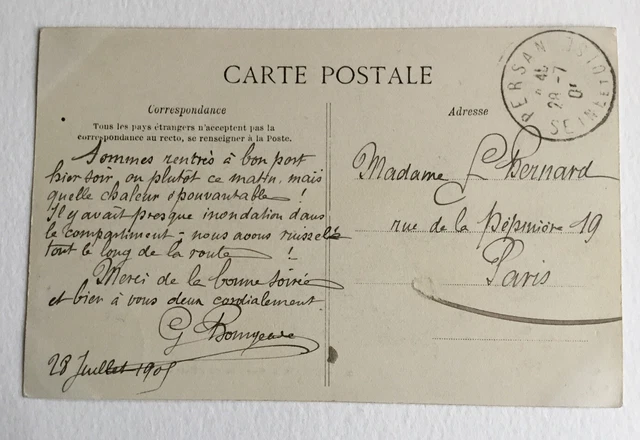 CARTE POSTALE
Correspondance
Tous les pays étrangers n'acceptent pas la
correspondance au recto, se renseigner à la Poste.
Sommes rentrés à bon port
hier soir, ou plutôt ce matin, mais
quelle chaleur épouvantable !
Il y avait presque inondation dans
le compartiment - nous avons ruisselé
tout le long de la route !
Merci de la bonne soirée
et bien à vous deux cordialement
G
28 Juillet 1905
Adresse
Madame Bernard
rue de la Pépinière 19
Paris
PERSAN
28 -7
SEINE